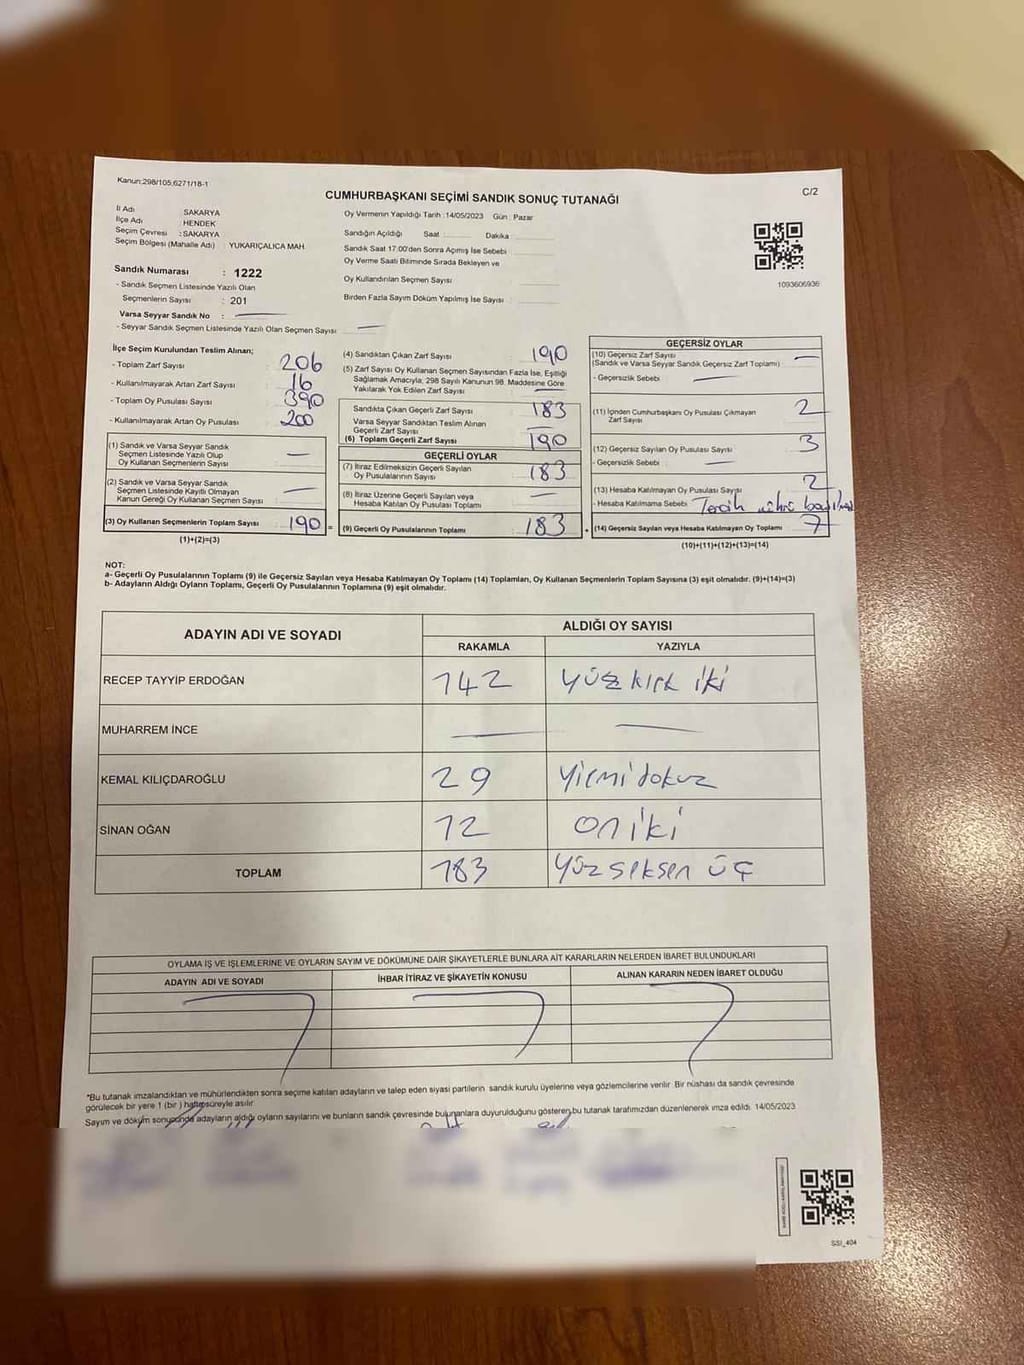 Kanun:298/105,6271/18-1
C/2
CUMHURBAŞKANI SEÇİMİ SANDIK SONUÇ TUTANAĞI
İl Adı : SAKARYA
İlçe Adı : HENDEK
Seçim Çevresi : SAKARYA
Seçim Bölgesi (Mahalle Adı) : YUKARIÇALICA MAH.
Sandık Numarası : 1222
- Sandık Seçmen Listesinde Yazılı Olan
Seçmenlerin Sayısı : 201
Varsa Seyyar Sandık No : —
- Seyyar Sandık Seçmen Listesinde Yazılı Olan Seçmen Sayısı —
Oy Vermenin Yapıldığı Tarih :14/05/2023 Gün : Pazar
Sandığın Açıldığı Saat : Dakika :
Sandık Saat 17:00'den Sonra Açılmış İse Sebebi
Oy Verme Saati Bitiminde Sırada Bekleyen ve
Oy Kullandırılan Seçmen Sayısı :
Birden Fazla Sayım Döküm Yapılmış İse Sayısı :
1093606936
İlçe Seçim Kurulundan Teslim Alınan;
- Toplam Zarf Sayısı : 206
- Kullanılmayarak Artan Zarf Sayısı : 16
- Toplam Oy Pusulası Sayısı : 390
- Kullanılmayarak Artan Oy Pusulası : 200
(1) Sandık ve Varsa Seyyar Sandık
Seçmen Listesinde Yazılı Olup
Oy Kullanan Seçmenlerin Sayısı : —
(2) Sandık ve Varsa Seyyar Sandık
Seçmen Listesinde Kayıtlı Olmayan
Kanun Gereği Oy Kullanan Seçmen Sayısı : —
(3) Oy Kullanan Seçmenlerin Toplam Sayısı : 190 =
(1)+(2)=(3)
(4) Sandıktan Çıkan Zarf Sayısı : 190
(5) Zarf Sayısı Oy Kullanan Seçmen Sayısından Fazla İse, Eşitliği
Sağlamak Amacıyla, 298 Sayılı Kanunun 98. Maddesine Göre
Yakılarak Yok Edilen Zarf Sayısı : —
Sandıkta Çıkan Geçerli Zarf Sayısı : 183
Varsa Seyyar Sandıktan Teslim Alınan
Geçerli Zarf Sayısı : —
(6) Toplam Geçerli Zarf Sayısı : 190
GEÇERLİ OYLAR
(7) İtiraz Edilmeksizin Geçerli Sayılan
Oy Pusulalarının Sayısı : 183
(8) İtiraz Üzerine Geçerli Sayılan veya
Hesaba Katılan Oy Pusulaları Toplamı : —
(9) Geçerli Oy Pusulalarının Toplamı : 183 +
GEÇERSİZ OYLAR
(10) Geçersiz Zarf Sayısı : —
(Sandık ve Varsa Seyyar Sandık Geçersiz Zarf Toplamı)
- Geçersizlik Sebebi : —
(11) İçinden Cumhurbaşkanı Oy Pusulası Çıkmayan
Zarf Sayısı : 2
(12) Geçersiz Sayılan Oy Pusulası Sayısı : 3
- Geçersizlik Sebebi : —
(13) Hesaba Katılmayan Oy Pusulası Sayısı : 2
- Hesaba Katılmama Sebebi : Tercih mührü
(14) Geçersiz Sayılan veya Hesaba Katılmayan Oy Toplamı : 7
(10)+(11)+(12)+(13)=(14)
NOT:
a- Geçerli Oy Pusulalarının Toplamı (9) ile Geçersiz Sayılan veya Hesaba Katılmayan Oy Toplamı (14) Toplamları, Oy Kullanan Seçmenlerin Toplam Sayısına (3) eşit olmalıdır. (9)+(14)=(3)
b- Adayların Aldığı Oyların Toplamı, Geçerli Oy Pusulalarının Toplamına (9) eşit olmalıdır.
ADAYIN ADI VE SOYADI
ALDIĞI OY SAYISI
RAKAMLA YAZIYLA
RECEP TAYYİP ERDOĞAN 142 yüz kırk iki
MUHARREM İNCE — —
KEMAL KILIÇDAROĞLU 29 yirmi dokuz
SİNAN OĞAN 12 on iki
TOPLAM 183 yüz seksen üç
OYLAMA İŞ VE İŞLEMLERİNE VE OYLARIN SAYIM VE DÖKÜMÜNE DAİR ŞİKAYETLERLE BUNLARA AİT KARARLARIN NELERDEN İBARET BULUNDUKLARI
ADAYIN ADI VE SOYADI İHBAR İTİRAZ VE ŞİKAYETİN KONUSU ALINAN KARARIN NEDEN İBARET OLDUĞU
*Bu tutanak imzalandıktan ve mühürlendikten sonra seçime katılan adayların ve talep eden siyasi partilerin sandık kurulu üyelerine veya gözlemcilerine verilir. Bir nüshası da sandık çevresinde
görülecek bir yere 1 (bir ) hafta süreyle asılır.
Sayım ve döküm sonucunda adayların aldığı oyların sayılarını ve bunların sandık çevresinde bulunanlara duyurulduğunu gösteren bu tutanak tarafımızdan düzenlenerek imza edildi. 14/05/2023
SSI_404